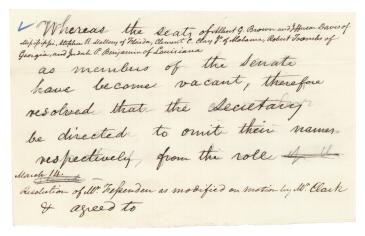 Whereas the seats of Albert G. Brown and Jefferson Davis of
Mississippi, Stephen R. Mallory of Florida, Clement C. Clay Jr of Alabama, Robert Toombs of
Georgia, and Judah P. Benjamin of Louisiana
as members of the Senate
have become vacant, therefore
resolved that the secretary
be directed to omit their names
respectively, from the roll
March 14.
Resolution of Mr Fessenden as modified on motion by Mr Clark
& agreed to